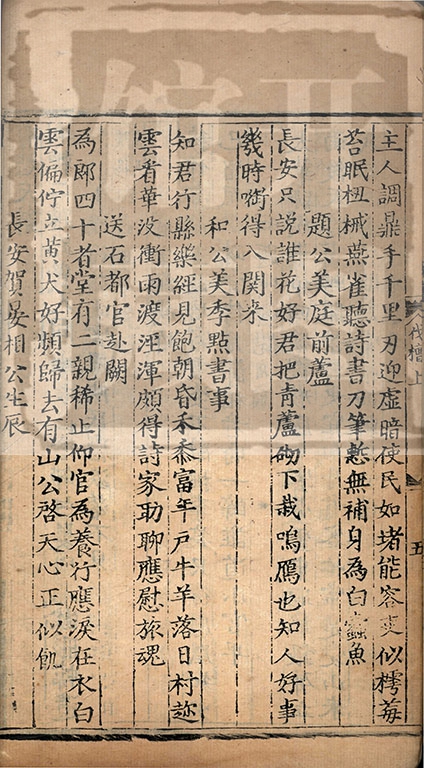 主人調鼎手千里刃迎虛暗使民如堵能容吏似樗莓
苔眠杻械燕雀聽詩書刀筆慙無補身為白蠹魚
題公美庭前蘆
長安只說誰花好君把青蘆砌下栽嗚鴈也知人好事
幾時啣得入關來
和公美季點書事
知君行縣樂經見飽朝昏禾黍富年戶牛羊落日村趂
雲看華沒衝雨渡涇渾頗得詩家助聊應慰旅魂
送石都官赴闕
為郎四十者堂有二親稀止仰官為養行應淚在衣白
雲偏佇立黃犬好頻歸去有山公啓天心正似飢
長安賀晏相公生辰
伐檀上
五